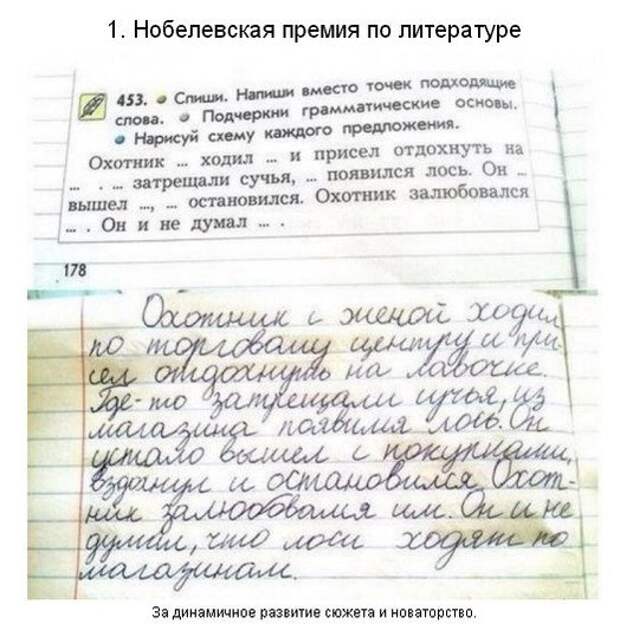 1. Нобелевская премия по литературе
453. • Спиши. Напиши вместо точек подходящие
слова. • Подчеркни грамматические основы.
• Нарисуй схему каждого предложения.
Охотник ... ходил ... и присел отдохнуть на
... . ... затрещали сучья, ... появился лось. Он ...
вышел ..., ... остановился. Охотник залюбовался
... . Он и не думал ... .
178
Охотник с женой ходил
по торговому центру и при-
сел отдохнуть на лавочке.
Где-то затрещали сучья, из
магазина появился лось. Он
устало вышел с покупками,
вздохнул и остановился. Охот-
ник залюбовался им. Он и не
думал, что лоси ходят по
магазинам.
За динамичное развитие сюжета и новаторство.